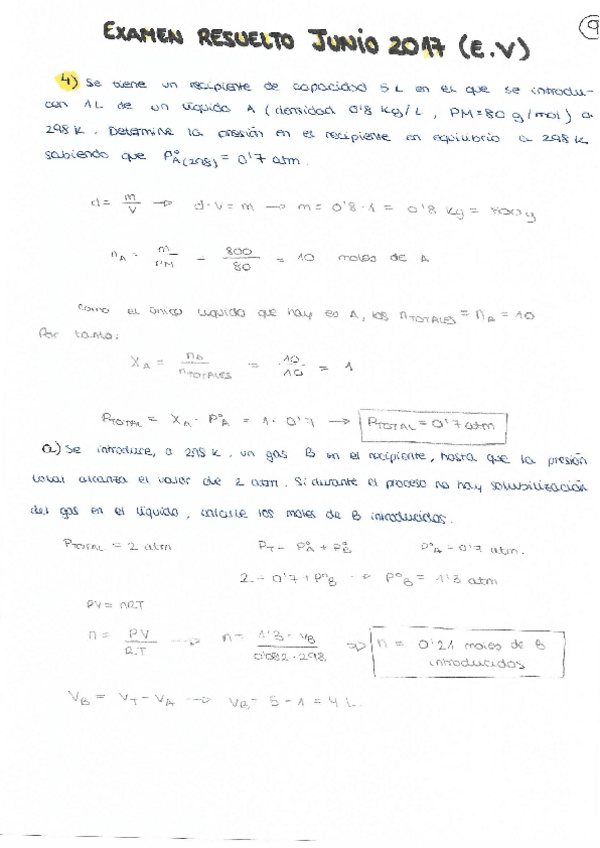 9
EXAMEN RESUELTO JUNIO 2017 (E.V)
4) Se tiene un recipiente de capacidad 5 L en el que se introdu-
cen 1 L de un líquido A (densidad 0'8 kg/L, PM=80 g/mol) a
298 K. Determine la presión en el recipiente en equilibrio a 298 K
sabiendo que P°A(298) = 0'7 atm.
d = m/V → d·V = m → m = 0'8·1 = 0'8 kg = 800 g
nA = m/PM = 800/80 = 10 moles de A
Como el único líquido que hay es A, los nTOTALES = nA = 10
Por tanto:
XA = nA/nTOTALES = 10/10 = 1
PTOTAL = XA · P°A = 1 · 0'7 → PTOTAL = 0'7 atm
a) Se introduce, a 298 K, un gas B en el recipiente, hasta que la presión
total alcanza el valor de 2 atm. Si durante el proceso no hay solubilización
del gas en el líquido, calcule los moles de B introducidos.
PTOTAL = 2 atm PT = P°A + P°B P°A = 0'7 atm.
2 = 0'7 + P°B → P°B = 1'3 atm
PV = nRT
n = PV/R.T → n = 1'3 · VB/0'082 · 298 ⇒ n = 0'21 moles de B
introducidos
VB = VT - VA → VB = 5 - 1 = 4 L.